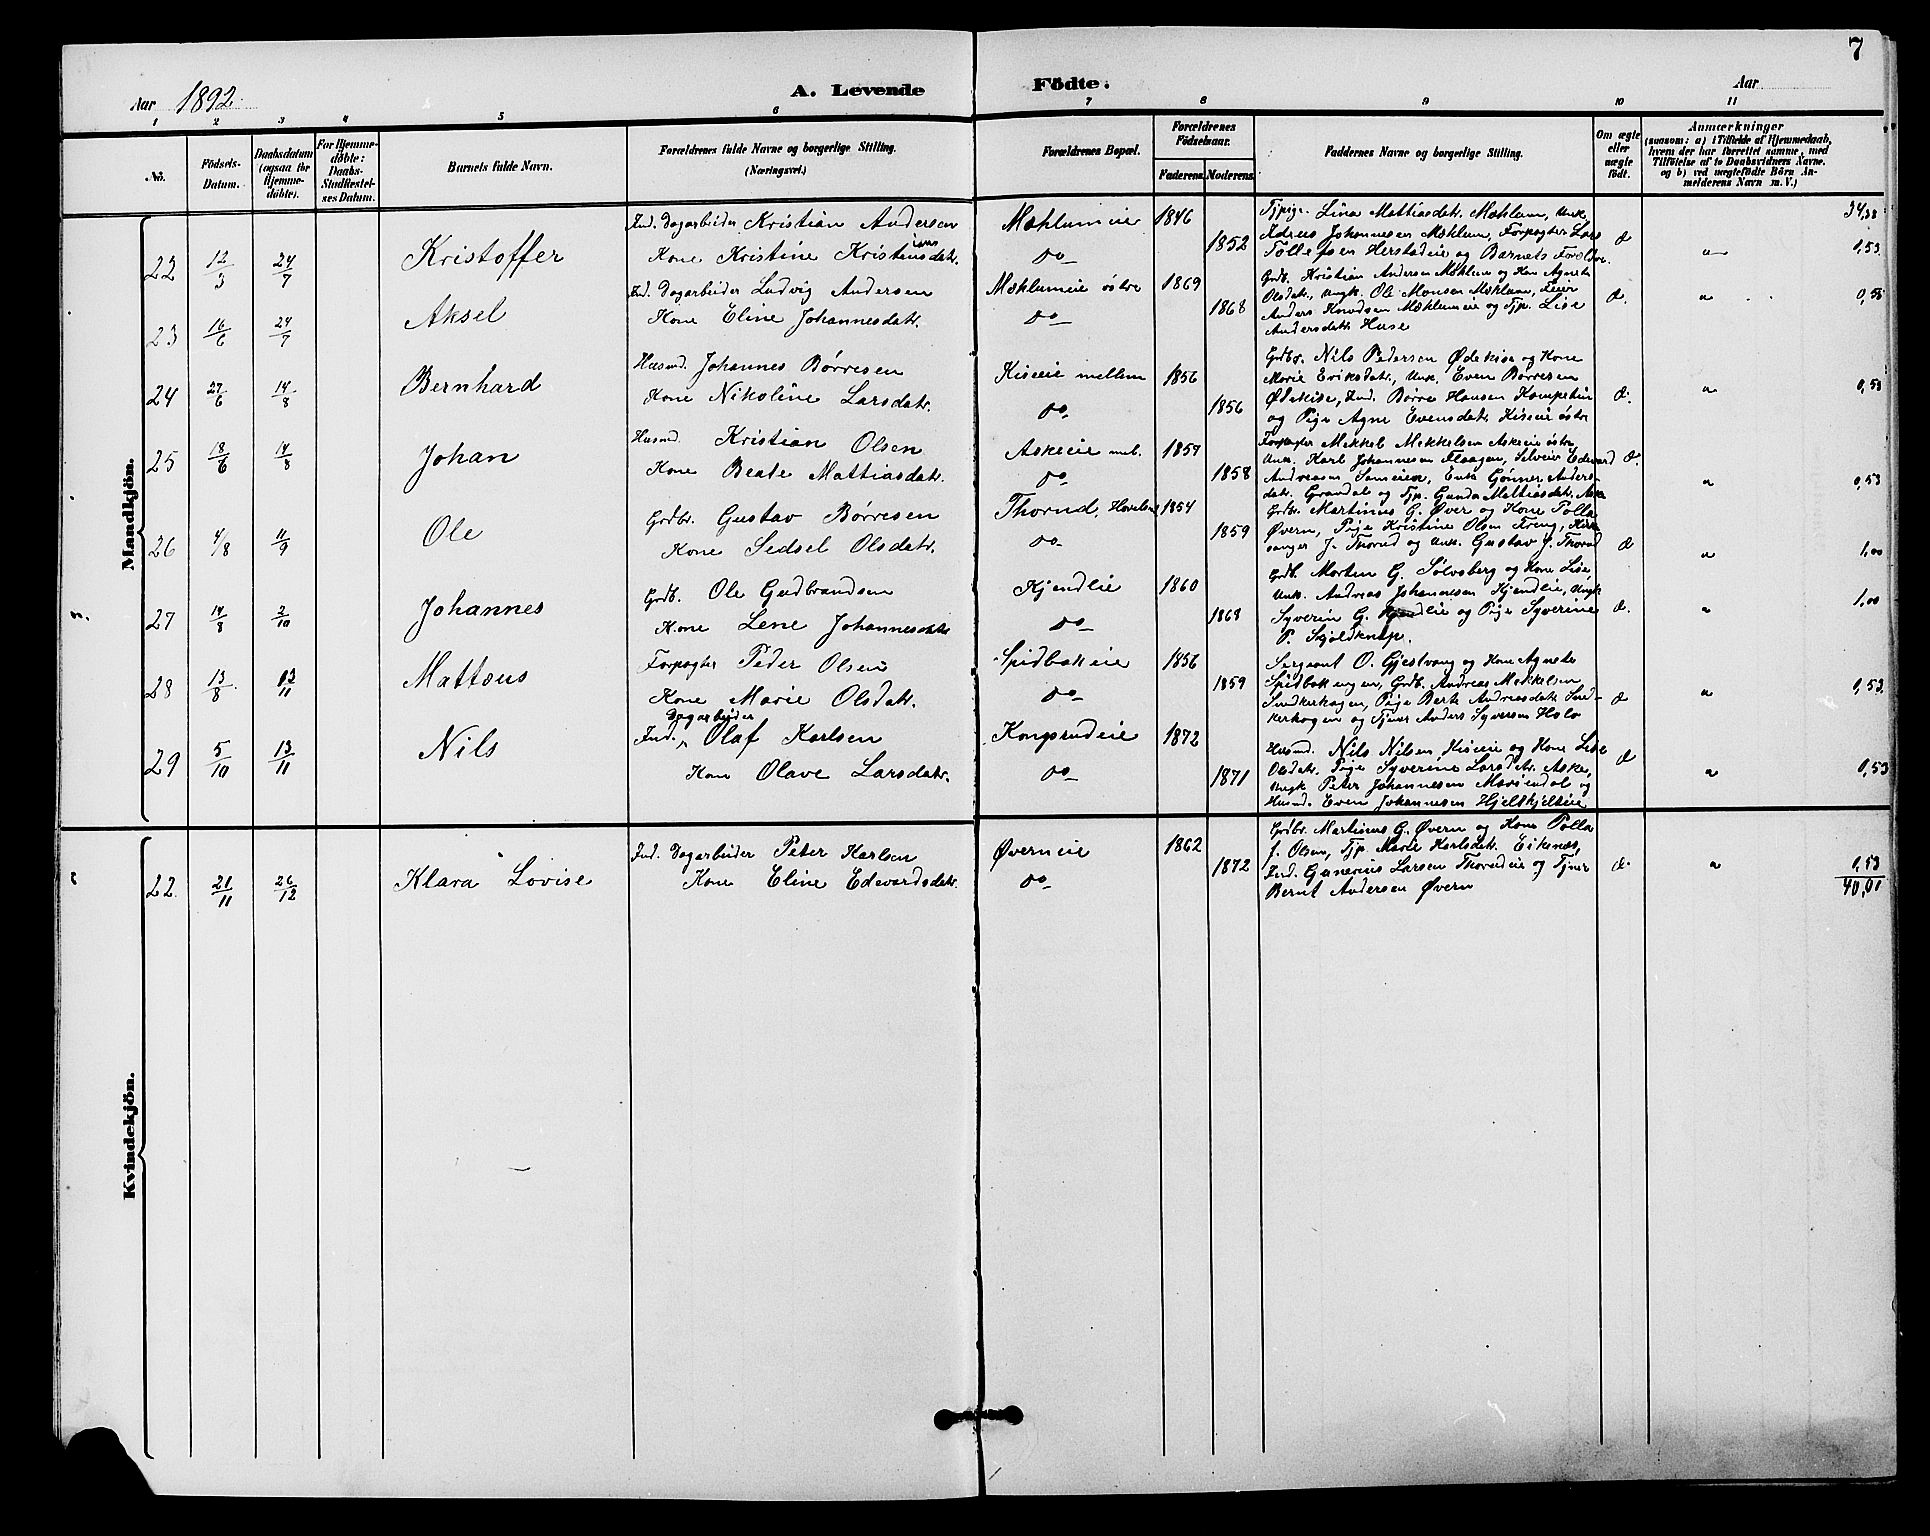 7
Aar 1892.
A. Levende Födte.
Aar
1 2 3 4 5 6 7 8 9 10 11
No.
Födsels-Datum.
Daabsdatum (ogsaa for Hjemmedöbte).
For Hjemmedöbte: Daabs-Stadfæstelses Datum.
Barnets fulde Navn.
Forældrenes fulde Navne og borgerlige Stilling. (Næringsvei.)
Forældrenes Bopæl.
Forældrenes Födselsaar.
Faderens. Moderens.
Faddernes Navne og borgerlige Stilling.
Om ægte eller uægte födt.
Anmærkninger
(saasom: a) i Tilfælde af Hjemmedaab, hvem der har forrettet samme, med Tilföielse af to Daabsvidners Navne. og b) ved uægtefödte Börn Anmelderens Navn m. V.)
Mandkjön.
34,38
22 12/3 24/7 Kristoffer
Ind. Dagarbeider Kristian Andersen
Kone Kristine Kristiansdatr.
Mæhlumeie 1846
do 1852
Tjpige. Lina Mattiasdatr. Mæhlum, Unk.
Adreas Johannesen Mæhlum, Forpagter Lars
Tollefsen Herstadeie og Barnets Forældre.
æ " 0,53
23 16/6 24/7 Aksel
Ind. Dagarbeider Ludvig Andersen
Kone Eline Johannesdatr.
Mæhlumeie östre 1869
do 1868
Grdb. Kristian Andersen Mæhlum og Kone Agnete
Olsdatr., Ungk. Ole Monsen Mæhlum, Leier
Anders Knudsen Mæhlumeie og Tjp. Lise
Andersdatr Huse
æ. " 0,58
24 27/6 14/8 Bernhard
Husmd. Johannes Børresen
Kone Nikoline Larsdatr.
Kiseeie mellem 1856
do 1856
Grdbr. Nils Pedersen Ødekise og Kone
Marie Eriksdatr., Unk. Even Børresen
Ødekise, Ind. Børre Hansen
og Pige Agne Evensdatr Kiseeie östre
æ. " 0,53
25 18/6 14/8 Johan
Husmd. Kristian Olsen
Kone Beate Mattiasdatr.
Askeeie mel. 1857
do 1858
Forpagter Mekkel Mekkelsen Askeeie östre
Unk. Karl Johannesen Flaagen, Selveier Edvard
Andreasen, Enke Gönner Anders-
datr. Grandal og Tjp. Gunda Mattiasdatr. Aske
æ. " 0,53
26 4/8 11/9 Ole
Grdbr. Gustav Børresen
Kone Sedsel Olsdatr.
Thorud, 1854
do 1859
Grdbr. Martinus G. Øver og Kone Tolla
Øvern, Pige Kristine Olsen Freng, Kirke
sanger J. Thorud og Unk. Gustav J. Thorud
æ " 1,00
27 14/8 2/10 Johannes
Grdb. Ole Gudbrandsen
Kone Lene Johannesdatr
Kjendlie 1860
do 1868
Grdb. Morten G. Sølvsberg og Kone Lise,
Unk. Andreas Johannesen Kjendlie, Ungk
Syverin G. Kjendlie og Pige Syverine
P. Skjoldknap.
æ. " 1,00
28 13/8 13/11 Mattæus
Forpagter Peder Olsen
Kone Marie Olsdatr.
Spidbakeie 1856
do 1859
Sergeant O. Gjestvang og Kone Agnete
Spidbakengen, Grdb. Andreas Mekkelsen
Sendkerhagen, Pige Berte Andreasdatr Send-
kerhogen og Tjener Anders Syversen Holo
æ " 0,53
29 5/10 13/11 Nils
Ind. Dagarbeider Olaf Karlsen
Kone Olave Larsdatr.
Kongsrudeie 1872
do 1871
Husmd. Nils Nilsen Kiseeie og Kone Lise
Olsdatr. Pige Syverine Larsdatr. Aske,
Ungk Peter Johannesen Mariendal og
Husmd. Even Johannesen Hjelskjeleie
æ " 0,53
Kvindekjön.
22. 21/11 26/12 Klara Lovise
Ind. Dagarbeider Peter Karlsen
Kone Eline Edvardsdatr.
Øverneie 1862
do 1872
Grdbr. Martinus G. Øvern og Kone Tolla
f. Olsen, Tjp. Marie Karlsdatr. Eikenæs,
Ind. Gunerius Larsen Thorudeie og Tjener
Bernt Andersen Øvern
æ. " 0,53
40,01